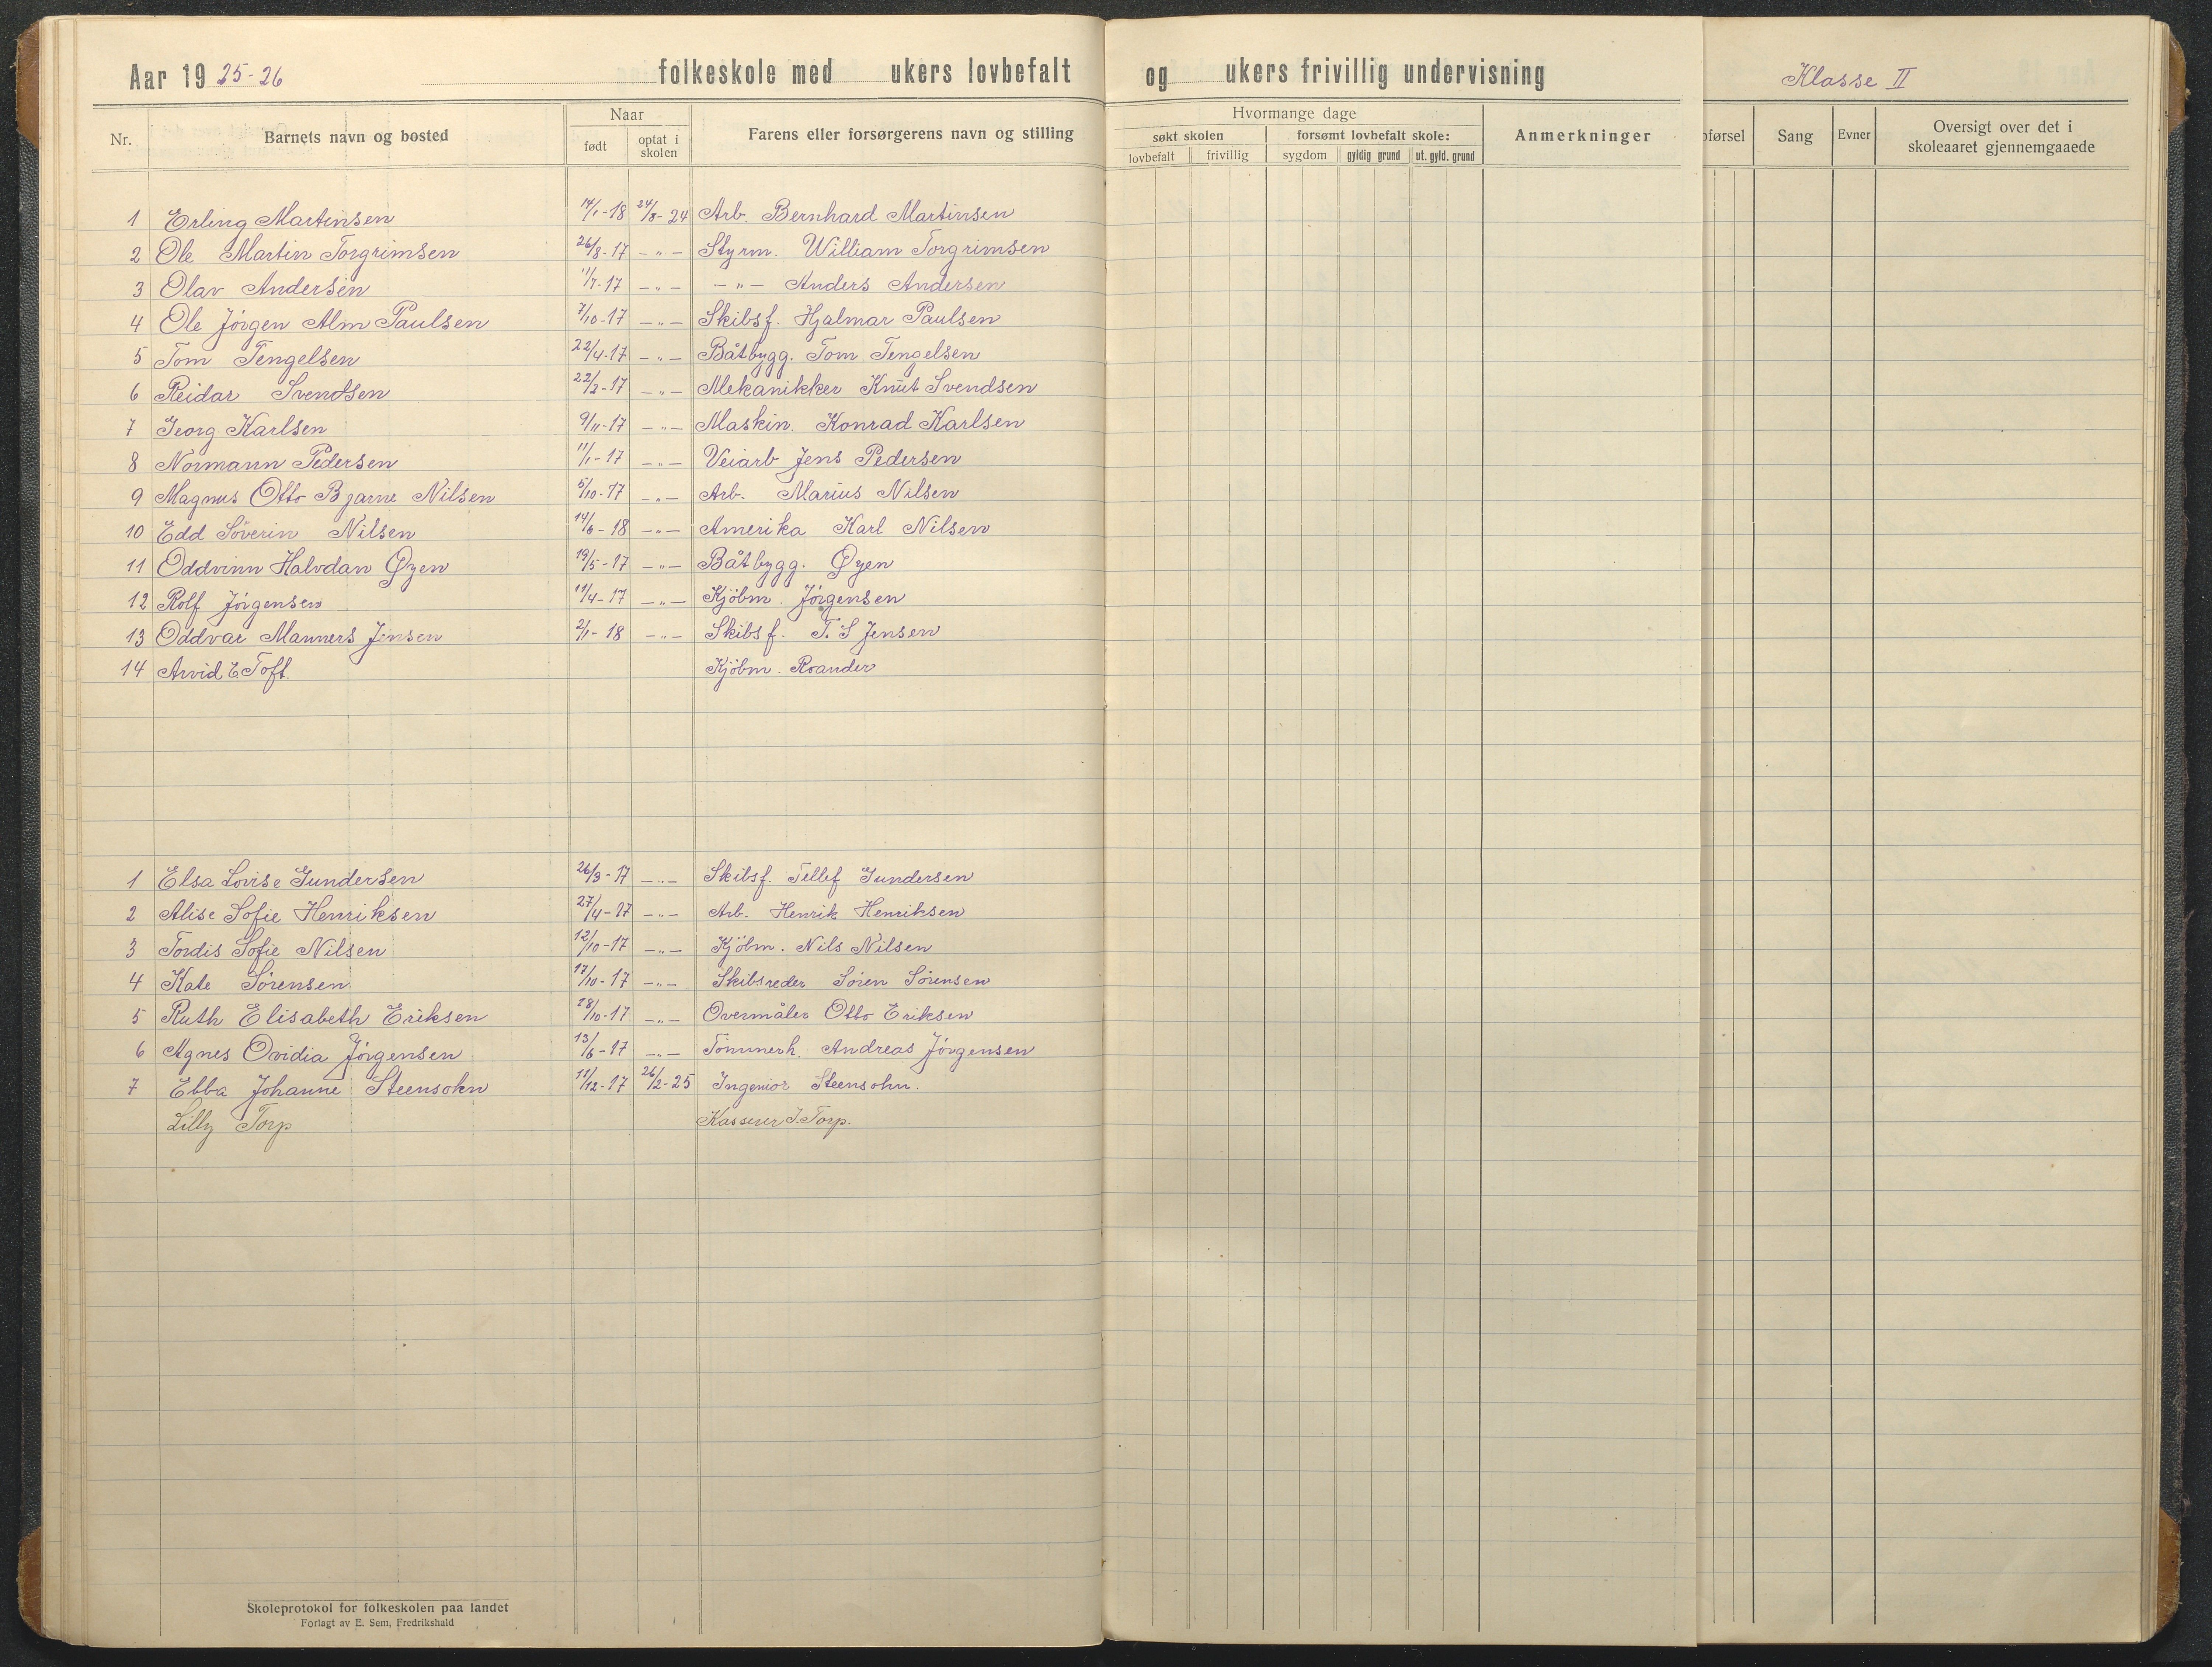 Aar 19 25-26 folkeskole med ukers lovbefalt og ukers frivillig undervisning Klasse II
Nr. Barnets navn og bosted Naar født optat i skolen Farens eller forsørgerens navn og stilling Hvormange dage søkt skolen lovbefalt frivillig forsømt lovbefalt skole: sygdom gyldig grund ut. gyld. grund Anmerkninger førsel Sang Evner Oversigt over det i skoleaaret gjennemgaaede
1 Erling Martinsen 14/1-18 24/8-24 Arb. Bernhard Martinsen
2 Ole Martin Torgrimsen 26/8-17 -"- Styrm. William Torgrimsen
3 Olav Andersen 11/7-17 -"- -"- Anders Andersen
4 Ole Jörgen Alm Paulsen 7/10-17 -"- Skibsf. Hjalmar Paulsen
5 Tom Tengelsen 22/4-17 -"- Båtbygg. Tom Tengelsen
6 Reidar Svendsen 22/2-17 -"- Mekanikker Knut Svendsen
7 Georg Karlsen 9/11-17 -"- Maskin. Konrad Karlsen
8 Normann Pedersen 11/1-17 -"- Veiarb Jens Pedersen
9 Magnus Otto Bjarne Nilsen 5/10-17 -"- Arb. Marius Nilsen
10 Edd Söverin Nilsen 14/6-18 -"- Amerika Karl Nilsen
11 Oddvinn Halvdan Øyen 19/5-17 -"- Båtbygg. Øyen
12 Rolf Jörgensen 11/4-17 -"- Kjöbm. Jörgensen
13 Oddvar Manners Jensen 2/1-18 -"- Skibsf. T. S Jensen
14 Arvid E Toft. Kjöbm. Roander
1 Elsa Lovise Gundersen 26/3-17 -"- Skibsf. Tellef Gundersen
2 Alise Sofie Henriksen 27/4-17 -"- Arb. Henrik Henriksen
3 Tordis Sofie Nilsen 12/10-17 -"- Kjöbm. Nils Nilsen
4 Kate Sörensen 17/10-17 -"- Skibsreder Sören Sörensen
5 Ruth Elisabeth Eriksen 28/10-17 -"- Overmåler Otto Eriksen
6 Agnes Ovidia Jörgensen 13/6-17 -"- Tömmerh. Andreas Jörgensen
7 Ebba Johanne Steensohn 11/12-17 26/2-25 Ingeniör Steensohn.
Lilly Torp Kasserer J. Torp.
Skoleprotokol for folkeskolen paa landet
Forlagt av E. Sem, Fredrikshald